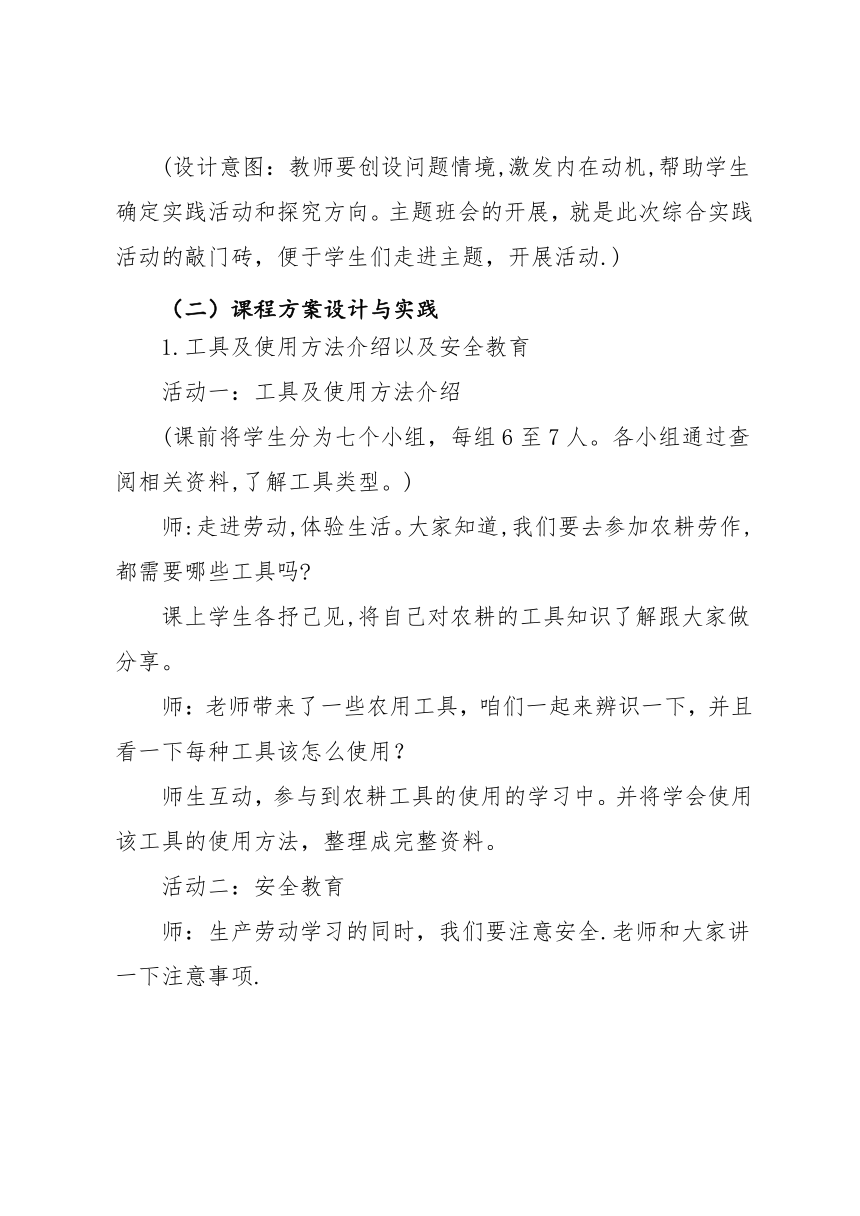 (设计意图：教师要创设问题情境,激发内在动机,帮助学生
确定实践活动和探究方向。主题班会的开展，就是此次综合实践
活动的敲门砖，便于学生们走进主题，开展活动.)
（二）课程方案设计与实践
1.工具及使用方法介绍以及安全教育
活动一：工具及使用方法介绍
(课前将学生分为七个小组，每组 6 至 7 人。各小组通过查
阅相关资料,了解工具类型。)
师:走进劳动,体验生活。大家知道,我们要去参加农耕劳作,
都需要哪些工具吗?
课上学生各抒己见,将自己对农耕的工具知识了解跟大家做
分享。
师：老师带来了一些农用工具，咱们一起来辨识一下，并且
看一下每种工具该怎么使用？
师生互动，参与到农耕工具的使用的学习中。并将学会使用
该工具的使用方法，整理成完整资料。
活动二：安全教育
师：生产劳动学习的同时，我们要注意安全.老师和大家讲
一下注意事项.